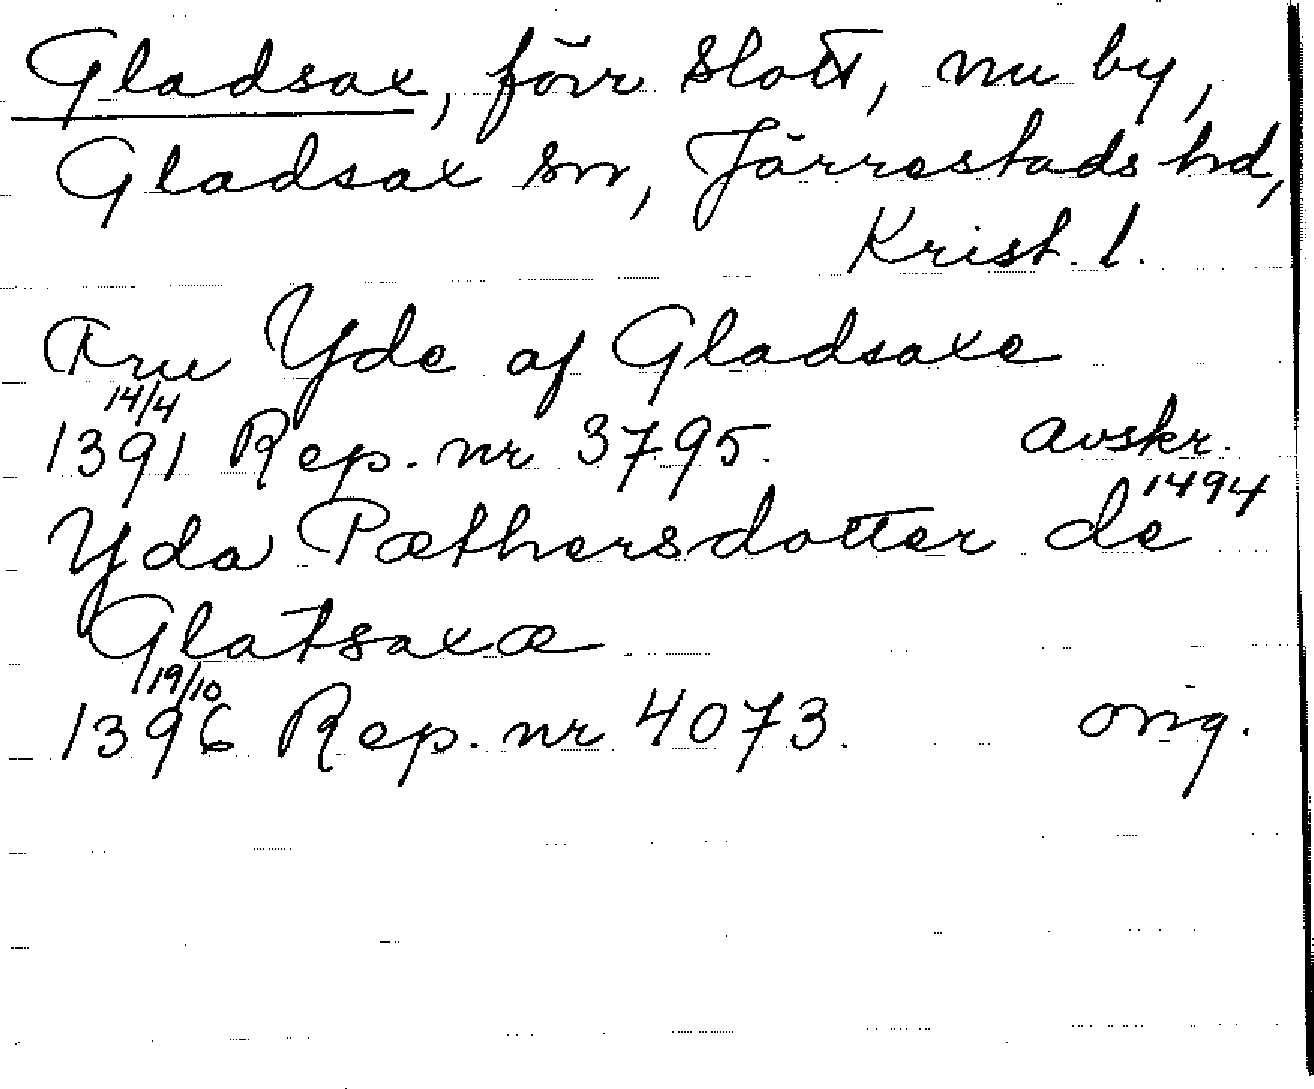 Gladsax, förr slott, nu by,
Gladsax sn, Järrestads hd,
Krist. l.
Fru Yde af Gladsaxe
14/4
1391 Rep. nr 3795. avskr.
1494
Yda Pæthersdotter de
Glatsaxæ
19/10
1396 Rep. nr 4073. orig.